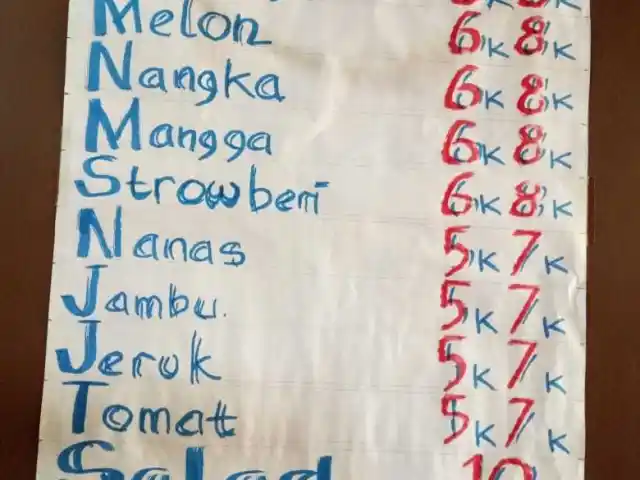 Melon 6,K 8,K
Nangka 6K 8,K
Mangga 6K 8,K
Strowberi 6,K 8,K
Nanas 5,K 7K
Jambu. 5K 7K
Jeruk 5K 7K
Tomatt 5K 7K
Salad 10